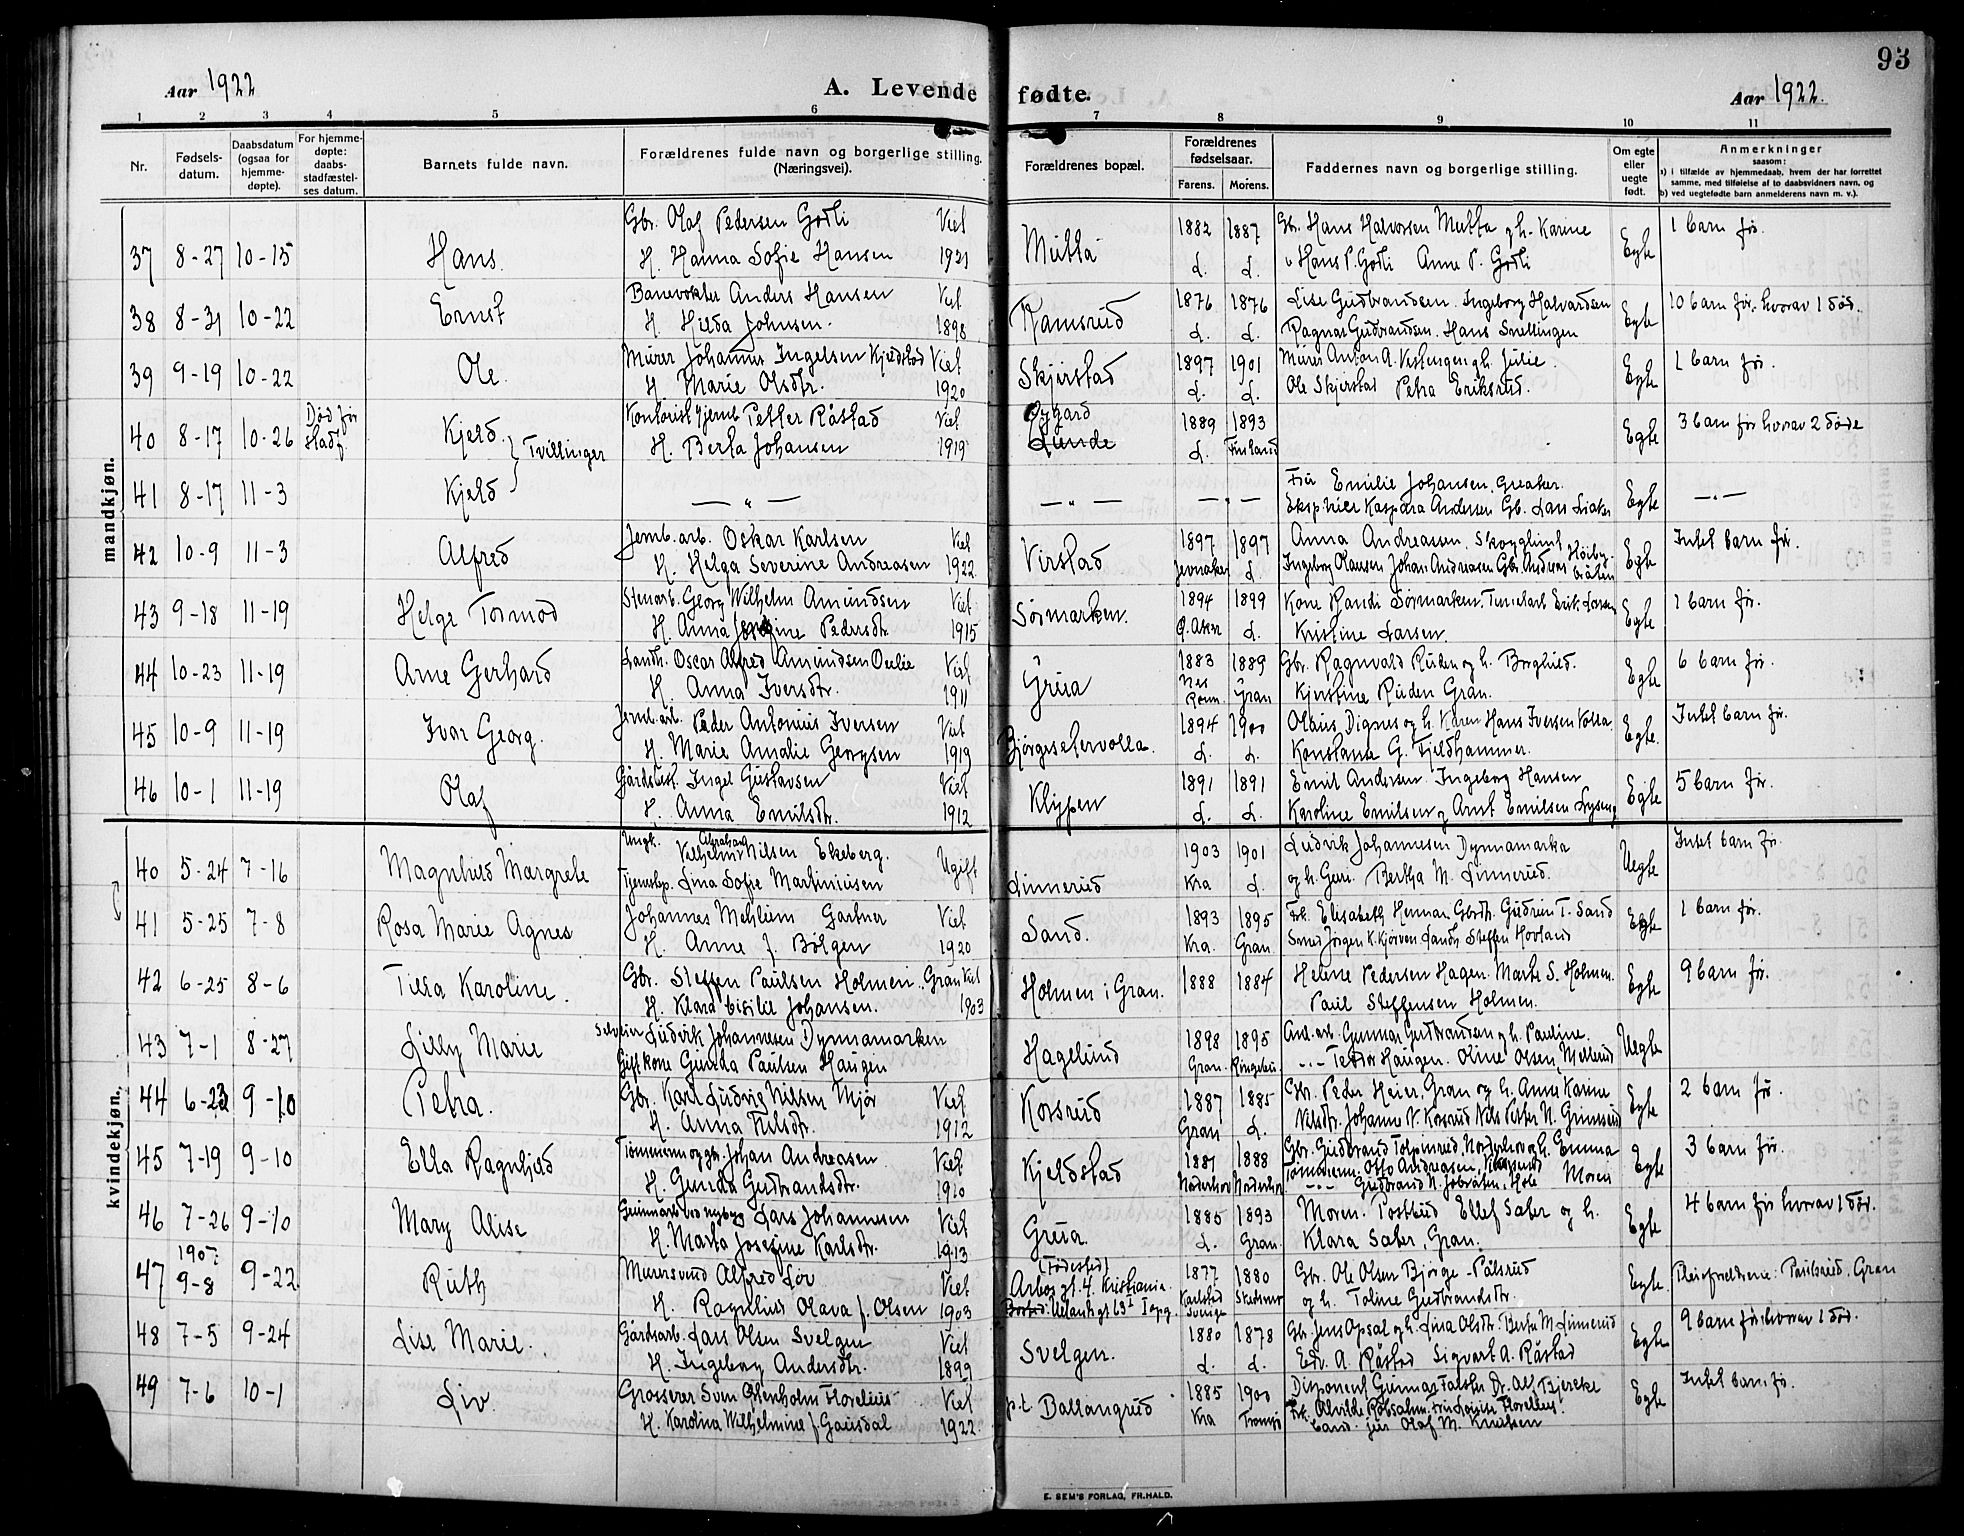 93
Aar 1922
A. Levende fødte.
Aar 1922.
1 2 3 4 5 6 7 8 9 10 11
Nr.
Fødsels-
datum.
Daabsdatum
(ogsaa for
hjemme-
døpte).
For hjemme-
døpte:
daabs-
stadfæstel-
ses datum.
Barnets fulde navn.
Forældrenes fulde navn og borgerlige stilling.
(Næringsvei).
Forældrenes bopæl.
Forældrenes
fødselsaar.
Farens. Morens.
Faddernes navn og borgerlige stilling.
Om egte
eller
uegte
født.
Anmerkninger
saasom:
a) i tilfælde av hjemmedaab, hvem der har forrettet
samme, med tilføielse af to daabsvidners navn, og
b) ved uegtefødte barn anmelderens navn m. v.).
mandkjøn.
Gbr. Olaf Pedersen Godli Viet 1882 1887 Gbr. Hans Halvorsen Mutta og h. Karine 1 barn før.
37 8-27 10-15 Hans. H. Hanna Sofie Hansen 1921 Mutta L. L. Hans P. Godli Anne P. Godli Egte
Banevokter Anders Hansen Viet 1876 1876 Lise Gudbrandsen. Ingeborg Halvardsen 10 barn før. hvorav 1 død.
38 8-31 10-22 Ernst H. Hilda Johnsen. 1898 Ramsrud L. L. Ragnar Gudbrandsen. Hans Snellingen Egte
Murer Johannes Ingelsen Kjeldstad Viet 1897 1901 Murer Anton A. Vestengen og h. Julie. 1 barn før.
39 9-19 10-22 Ole. H. Marie Olsdtr. 1920 Skjerstad L. L. Ole Skjerstad Petra Eriksrud. Egte
Død før Kontorist Petter Råstad Viet Øygard 1889 1893 3 barn før hvorav 2 døde
40 8-17 10-26 Stadf. Kjeld } Tvillinger H. Berta Johansen 1919 Lunde L. Finland Egte
Fru Emilie Johansen, Greaker.
41 8-17 11-3 Kjeld — " — — " — — " — Kaspara Andersen Gb. Lars Liaker Egte — " —
Jernb.arb. Oskar Karlsen Viet 1897 1897 Anna Andreassen, Skoyglint Intet barn før.
42 10-9 11-3 Alfred H. Helga Severine Andreasen 1922 Virstad Jevnaker L. Ingeborg Olausen Johan Andreasen Gbr. Andreas Høibybråten Egte
Stenarb. Georg Wilhelm Amundsen Viet 1894 1899 Kone Randi Sørmarken. Erik Larsen 1 barn før.
43 9-18 11-19 Helge Tormod H. Anna Pedersdtr. 1915 Sørmarken. Ø. Aker L. Kristine Larsen. Egte
Landh. Oscar Alfred Amundsen Viet 1883 1889 Gbr. Ragnvald Ruden og h. Borghild. 6 barn før.
44 10-23 11-19 Arne Gerhard H. Anna Iversdtr. 1911 Grua Nes Rom. Gran Kjerstine Ruden Gran. Egte
Jernb.arb. Peder Antonius Iversen Viet 1894 1900 Olaus Dignes og h. Karen Hans Iversen Volla Intet barn før.
45 10-9 11-19 Ivar Georg. H. Marie Amalie Georgsen 1919 Bjørgesetervolla. L. L. Konstanse G. Fjeldhammer. Egte.
Gårdsbest. Ingel Gustavsen Viet 1891 1891 Emil Andersen. Ingeborg Hansen 5 barn før.
46 10-1 11-19 Olaf H. Anna Emilsdtr. 1912 Klyppen L. L. Karoline Emilsen og Arnt Emilsen Egte
kvindekjøn.
Ungk. Abraham Vilhelm Nilsen Ekeberg. 1903 1901 Ludvik Johannesen Dynnamarka Intet barn før.
40 5-24 7-16 Magnhild Margrete Tjenestep. Lina Sofie Martiniusen Ugift Linnerud Kra L. og h. Guri. Bertha M. Linnerud. Uegte
Johannes Mehlum Gartner Viet 1893 1895 Frk. Elisabeth Herman Gudrun T. Sand 1 barn før.
41 5-25 7-8 Rosa Marie Agnes H. Anne f. Bølgen 1920 Sand. Kra. Gran Smed Jørgen K. Kjørven Landh. Steffen Hovland Egte
Gbr. Steffen Paulsen Holmen. Gran Viet 1888 1884 Helene Pedersen Hagen. Marte S. Holmen. 9 barn før.
42 6-25 8-6 Tilla Karoline. H. Klara Cisilie Johansen. 1903 Holmen i Gran. Paul Steffensen Holmen. Egte
Ludvik Johannesen Dynnamarken 1898 1895 Gunnar Gudbrandsen og h. Pauline.
43 7-1 8-27 Lilly Marie Gift kone Gunda Paulsen Haugen Hagelund Gran. Ringebu Haugen. Oline Olsen Mellerud Uegte
Gbr. Karl Ludvig Nilsen Mjør Viet 1887 1885 Gbr. Peder Heier, Gran og h. Anne Karine 2 barn før.
44 6-23 9-10 Petra. H. Anna Nilsdtr. 1912 Korsrud Gran L. Nilsdtr. Johanne N. Korsrud Nils Peter N. Grinnerud Egte
Tømmerm. og gbr. Johan Andreasen Viet 1881 1888 Gbr. Gudbrand Tolpinrud, Norderhov og h. Emma 3 barn før.
45 7-19 9-10 Ella Ragnhild H. Gunda Gudbrandsdtr. 1910 Kjeldstad Norderhov Norderhov Tømmerm. Otto Andreasen, Moren Egte
Gudbrand N. Jobråten, Hole
Lars Johannesen Viet 1885 1893 Moren. Postbud Ellef Sater og h. 4 barn før hvorav 1 død.
46 7-26 9-10 Mary Alise H. Marta Josefine Karlsdtr. 1913 Grua. L. Gran. Klara Sater, Gran. Egte
1907: Murersvend Alfred Löv Viet (Fødested) 1877 1880 Gbr. Ole Olsen Bjørge - Pålsrud
47 9-8 9-22 Ruth H. Ragnhild Olava f. Olsen 1903 Arbos gt. 4 Kristiania. Karlstad Sverige Skedsmo og h. Toline Gudbrandsdtr. Egte. Pleieforældrene: Paulsrud, Gran
Gårdsarb. Lars Olsen Svelgen Viet 1880 1878 Gbr. Jens Opsal og h. Lina Olsdtr. Berte M. Linnerud 9 barn før hvorav 1 død.
48 7-5 9-24 Lise Marie. H. Ingeborg Andersdtr. 1899 Svelgen. L. L. Edv. A. Råstad Sigvart A. Råstad Egte
Grosserer Sven Stenholm Florelius Viet 1885 1900 Disponent Gunnar Dr. Alf Bjercke Intet barn før.
49 7-6 10-1 Liv. H. Karolina Wilhelmine f. Gausdal 1922. p.t. Ballangrud Kra Tromsø Frk. Alvilde Robsahm. Fru Louise Florelius. Egte
Cand. jur. Olaf M. Knutsen
E. SEM'S FORLAG, FR.HALD.